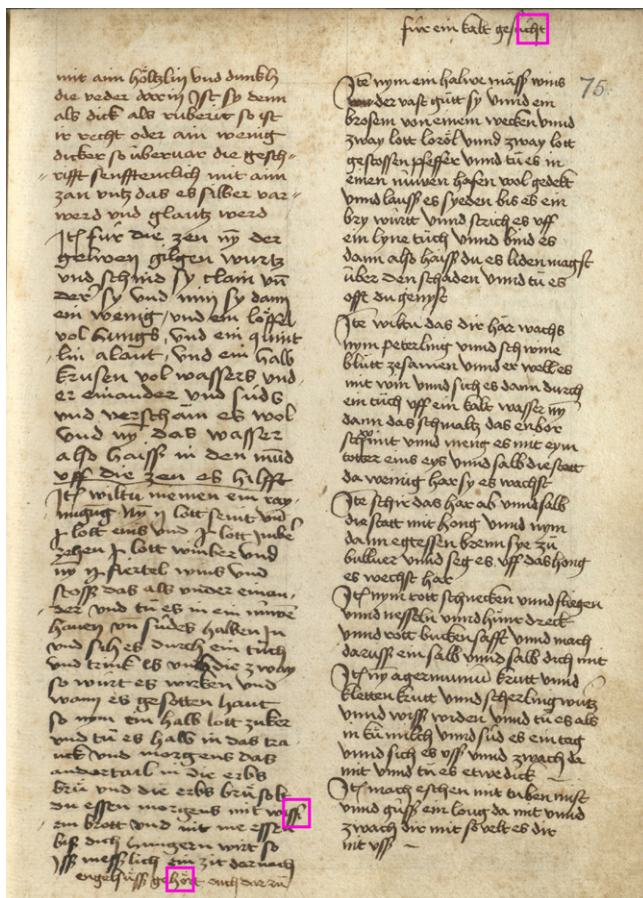 für ein kalt gesücht
75
mit ain höltzlin vnd dunkh
die veder dar in Ist sy denn
als dick als ruberir so ist
ir recht oder ain wenig
dicker so überuar die gesch-
rifft senfftentlich mit ain
zan vntz das es silber var
werd vnd glantz werd
Itm für die zen ny der
gelwen gilgen wurtz
vnd schnid sy clain vn
derr sy vnd nim sy dann
ein wenig vnd ein löffel
vol hungs vnd ein quint
lin alant vnd ein halb
krusen vol wassers vnd
er einander vnd süds
vnd verscham es wol
vnd ny das wasser
also haiss in den mud
vff die zen es hilfft
Itm wiltu nemen ein ray
nigug ny ij lott senit vn
j lott enis vnd j lott
zehen j lott winber vnd
ny ij fiertel wins vnd
stoss das als vnder einan-
der vnd tu es in ein nuwen
hauen vn südes halben in
vnd sih es durch ein tuch
vnd trink es vnd die zway
so würt es wirken vnd
wann es gesotten haut
so nym ein halb lott zuker
vnd tu es halb in das tra
nck vnd morgens das
andertail in die erbs
brü vnd die erbs brü solt
du essen morgens mit wiss
em brott vnd nit me essen
biss dich hungern wirt so
Iss messlich ein zit darnach
engelsüss gehört auch dar zu
Ite nym ein halwe mäss wins
der vast gütt sy vnnd ein
brosem von einem wecken vnnd
zway lott loröl vnnd zway lott
gestossen pfeffer vnnd tu es in
einen nüwen hafen wol gedekt
vnnd lauss es syeden bis es ein
bry württ vnnd strich es vff
ein lyne tuch vnnd bind es
dann also haiss du es liden magst
über den schaden vnnd tu es
offt du genist
Ite wiltu das dir här wachs
nym peterling vnnd schwine
blütt zesamen vnnd er well es
mit win vnnd sich es dann durch
ein tuch vff ein kalt wasser ny
dann das schmaltz das enbor
schwint vnnd meng es mit eym
totter eins eys vnnd salb die statt
da wenig har sy es wachst
Ite schir das har ab vnnd salb
die statt mit hong vnnd nym
dann egtessen brenn sye zu
bulluer vnnd seg es vff das hong
es wechst har
Itm nym rott schnecken vnnd fliegen
vnnd nesseln vnnd hüner dreck
vnnd rott bucken safft vnnd mach
daruss ein salb vnnd salb dich mit
Itm ny agermunii krutt vnnd
kletten krutt vnnd scherling wurtz
vnnd wiss widen vnnd tu es als
in ku milch vnnd süd es ein tag
vnnd sich es vss vnnd zwach da
mit vnnd tu es etwe dick
Itm mach eschen mit tuben mist
vnnd güss ein loug da mit vnnd
zwach dir mit so velt es dir
nit vss